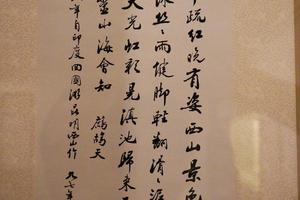 疏红晚有姿西山景色
丝丝雨健脚轻翔清
天光虹彩晃滇池歸来
靈山海會知 鹧鸪天
年自印度回國游昆明西山作 九七年